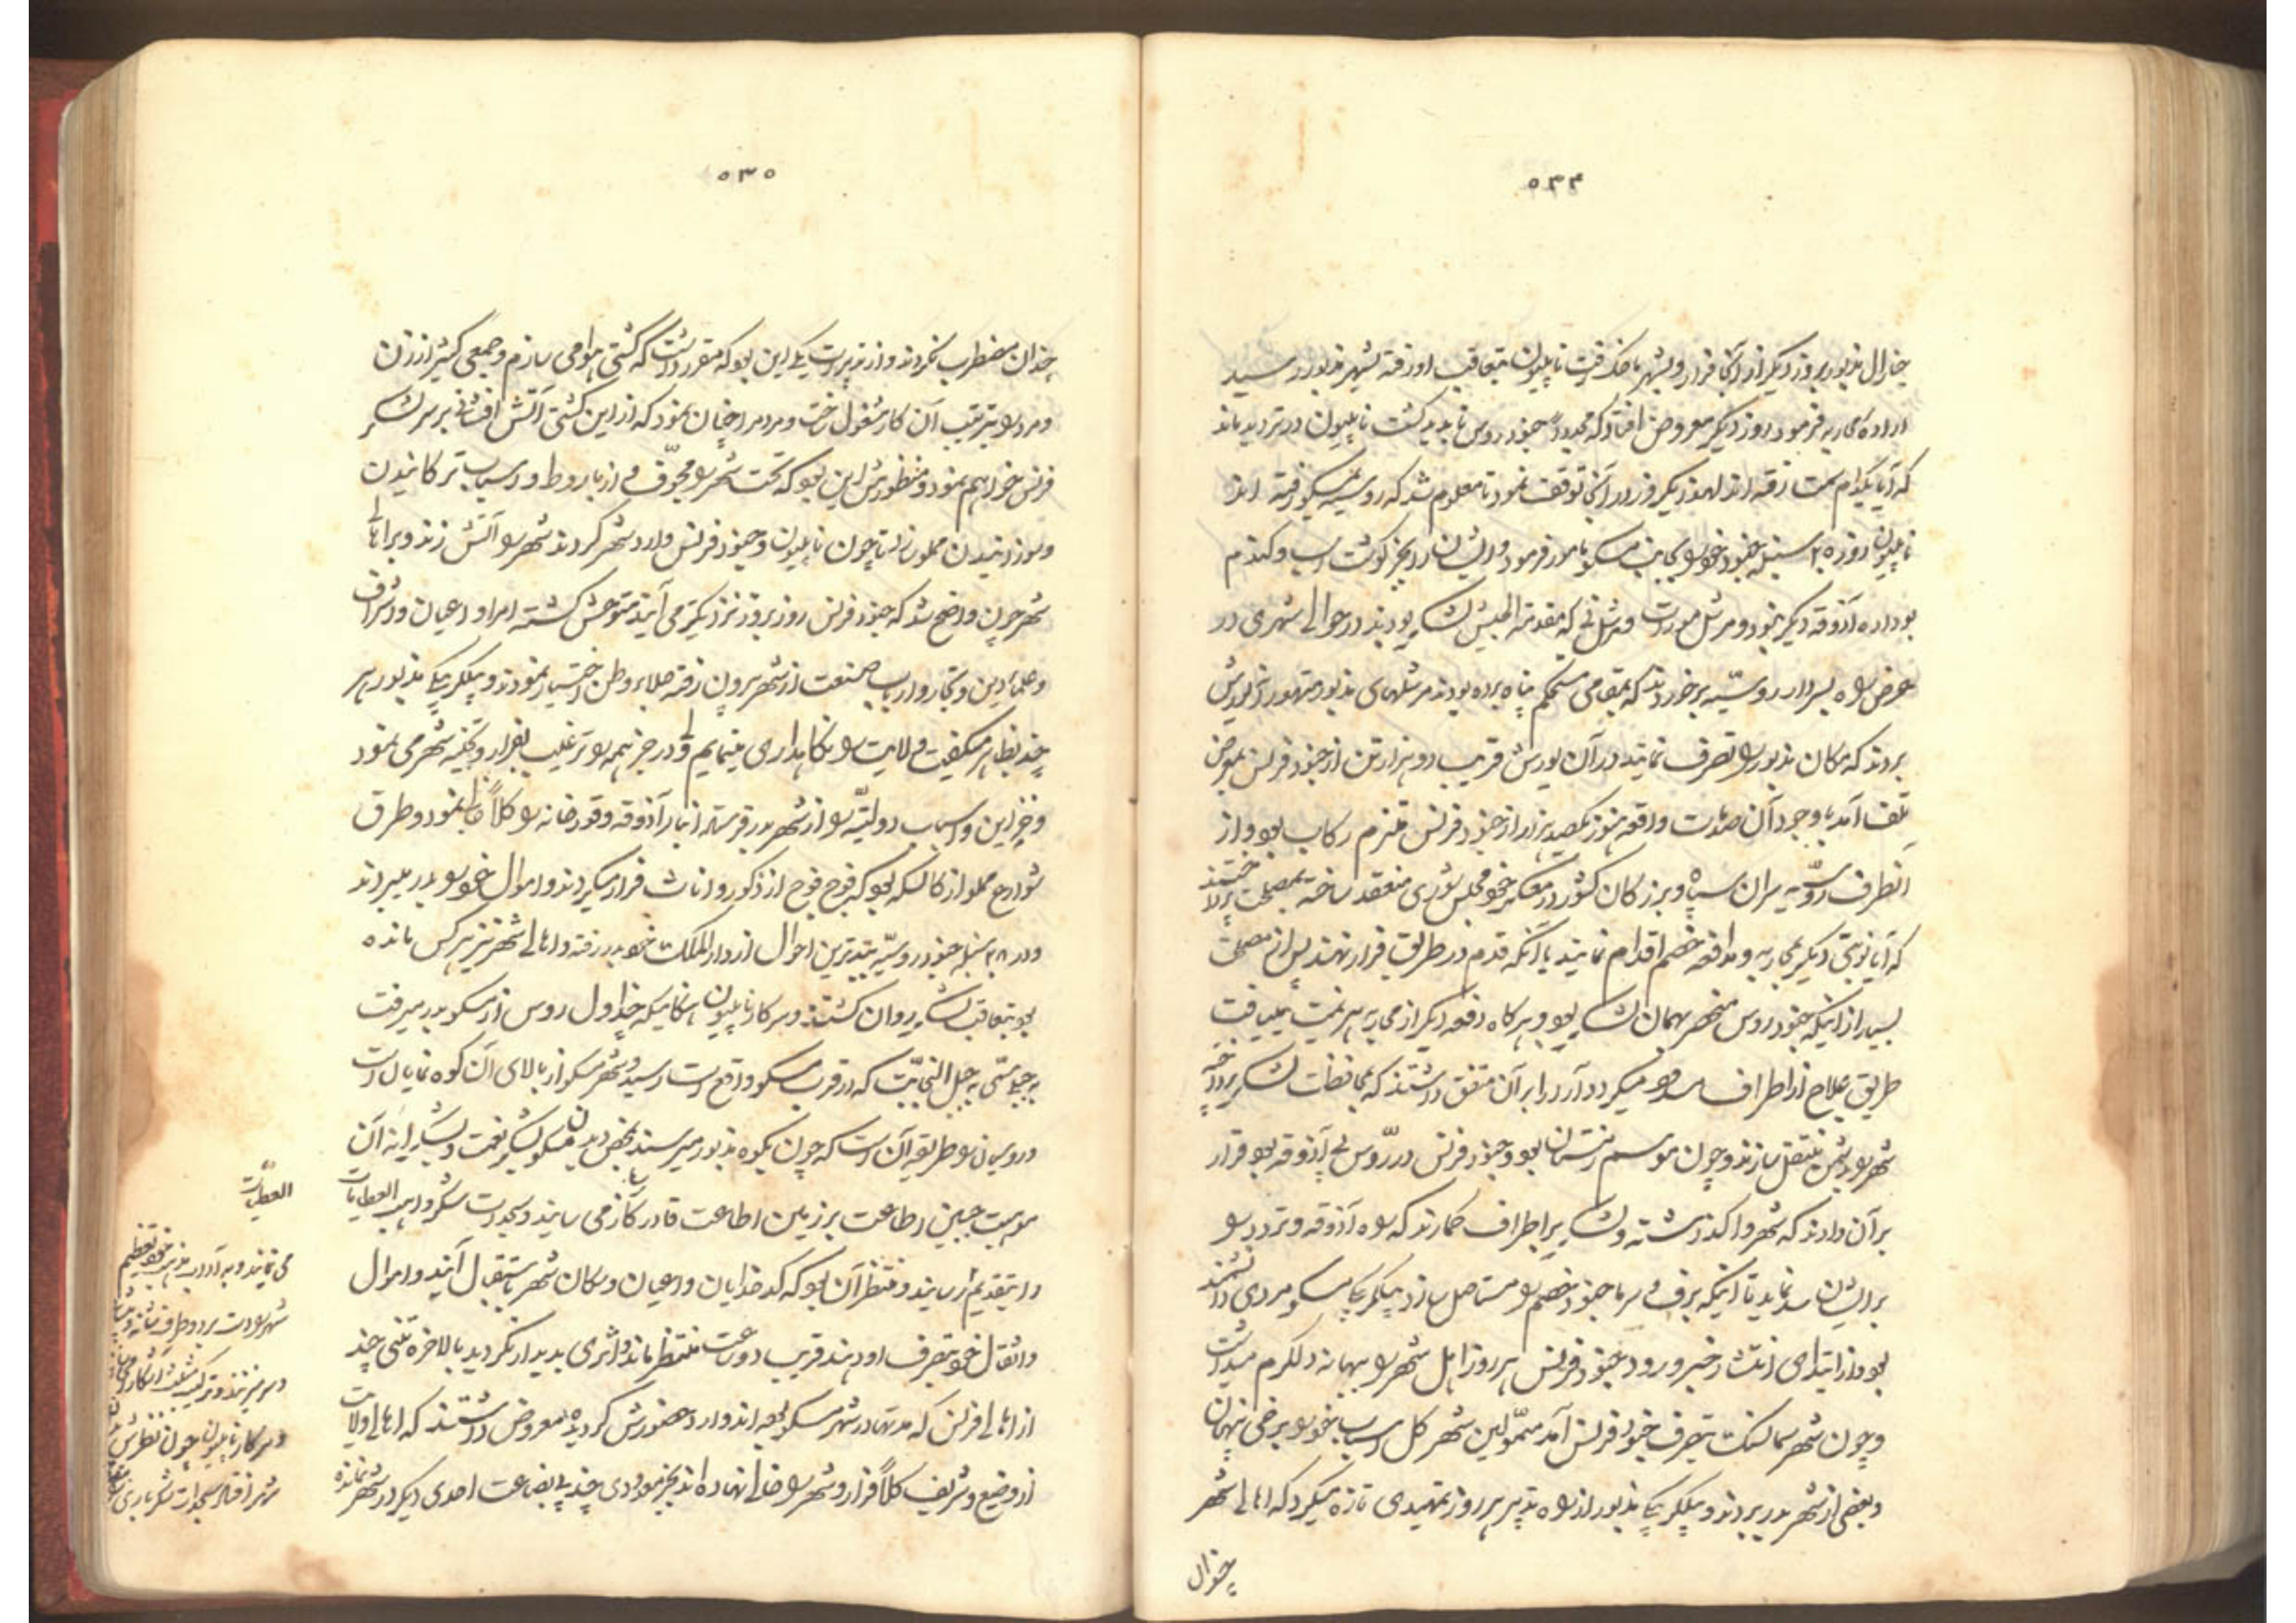 ۵۳۴
جنرال مذبور روز دیگر از آنجا فرار و بشهر رفت ناپلیون بتعاقب او رفته بشهر مذبور رسید
اراده محاربه فرمود روز دیگر معروض افتاد که مجدداً جنود روس ناپدید گشت ناپلیون در تردید ماند
که آیا بکدام سمت رفته اند لهذا یکروز در آنجا توقف نمود تا معلوم شد که روسیه بمسکو رفته اند
ناپلیون روز ۲۵ سنبله جنود خود را بجانب مسکو مامور فرمود و ایشان را بجز گوشت اسب و گندم
بو داده آذوقه دیگر نبود و مرشل مورات و مرشل نی که مقدمة الجیش لشکر بودند در حوالی شهری در
عرض راه بسردار روسیّه برخوردند که بمقامی مستحکم پناه برده بودند مرشلهای مذبور متهورانه یورش
بردند که مکان مذبور را تصرف نمایند در آن یورش قریب دو هزار تن از جنود فرنس بمعرض
تلف آمد با وجود آن صدمات واقعه هنوز یکصد هزار از جنود فرنس ملتزم رکاب بود و از
آنطرف روسیّه سران سپاه و بزرگان کشور در معسکر خود مجلس شوری منعقد ساخته بمصلحت پرداختند
که آیا نوبتی دیگر بمحاربه و مدافعه خصم اقدام نمایند یا آنکه قدم در طریق فرار نهند پس از مصلحت
بسیار از اینکه جنود روس منحصر بهمان لشکر بود و هر گاه دفعه دیگر از محاربه هزیمت مییافت
طریق علاج از اطراف مسدود میگردد آراء را بر آن متفق داشتند که بمحافظت لشکر پرداخته
شهر را بدشمن منتقل سازند و چون موسم زمستان بود و جنود فرنس در روس بی آذوقه بود قرار
بر آن دادند که شهر واگذاشته و لشکر بر اطراف گمارند که راه آذوقه و تردد را
بر ایشان سد نماید تا اینکه برف و سرما جنود خصم را مستاصل سازد بیگلربیگی مسکو مردی دانشمند
بود و از ابتدای انتشار خبر ورود جنود فرنس هر روز اهل شهر را ببهانه دلگرم میداشت
و چون شهر سمالنسک بتصرف جنود فرنس آمد متمولین شهر کل اسباب خود را برخی پنهان
و بعضی از شهر بدر بردند و بیگلربیگی مذبور از راه تدبیر هر روز تمهیدی تازه میکرد که اهالی شهر
چندان
۵۳۵
چندان مضطرب نگردند و از تدبیرات یکی این بود که مقرر داشت که کشتی هوامی سازم و جمعی کثیر از زن
و مرد را بترتیب آن کار مشغول ساخت و مردم را چنان نمود که از این کشتی آتش افشانی بر سر لشکر
فرنس خواهم نمود و منظورش این بود که تحت شهر را مجوّف و از باروط و اسباب ترکانیدن
و سوزانیدن مملو سازد تا چون ناپلیون و جنود فرنس وارد شهر گردند شهر را آتش زند و بر اهالی
شهر چون واضح شد که جنود فرنس روز بروز نزدیکتر می آیند متوحش گشته امرا و اعیان و اشراف
و علماء دین و تجار و ارباب صنعت از شهر بیرون رفته جلاء وطن اختیار نمودند و بیگلربیگی مذبور هر
چند بظاهر میگفت ولایت را نگاهداری مینمایم ولی در خفیه همه را ترغیب بفرار و تخلیه شهر می نمود
و خزاین و اسباب دولتیّه را از شهر بدر فرستاد انبار آذوقه و قورخانه را کلاً ضایع نمود و طرق
شوارع مملو از کالسکه بود که فوج فوج از ذکور و اناث فرار میکردند و اموال خود را بدر میبردند
و در ۲۸ سنبله جنود روسیّه ببدترین احوال از دارالملک خود بدر رفته و اهالی شهر نیز هر کس مانده
بود بتعاقب لشکر روان گشتند و سرکار ناپلیون هنگامیکه جنرال روس از مسکو بدر میرفت
به جبلی مسمّی به جبل النجات که در قرب مسکو واقع است رسید و شهر مسکو از بالای آن کوه نمایان است
و روسیان را طریقه آن است که چون بکوه مذبور میرسند بمحض دیدن مسکو بشکر نعمت و بشکرانه آن
موهبت جبین اطاعت بر زمین اطاعت قادر کارساز می سایند و سجدات شکر واهب العطایات
را بتقدیم رسانیند و منتظر آن بود که کدخدایان و اعیان و سکان شهر باستقبال آیند و اموال
و اثقال خود بتصرف او دهند قریب دو ساعت منتظر مانده اثری پدیدار نگردید بالاخره تنی چند
از اهالی فرنس که مدتها در شهر مسکو بوده اند وارد حضورش گردیده معروض داشتند که اهالی ولایت
از وضیع و شریف کلاً فرار و شهر را خالی نهاده اند بجز معدودی چند بی بضاعت احدی دیگر در شهر نمانده
العطیات
می نمایند و به آداب مذهب خود تعظیم
و سرکار ناپلیون چون نظرش